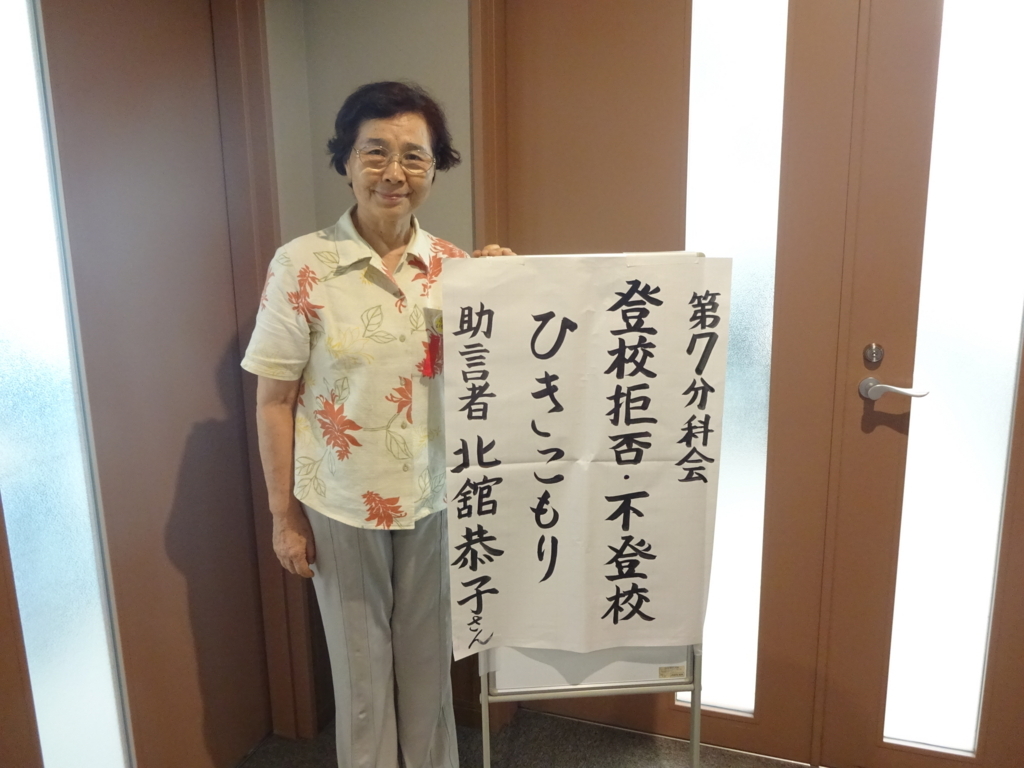 第7分科会
登校拒否・不登校
ひきこもり
助言者 北舘恭子さん